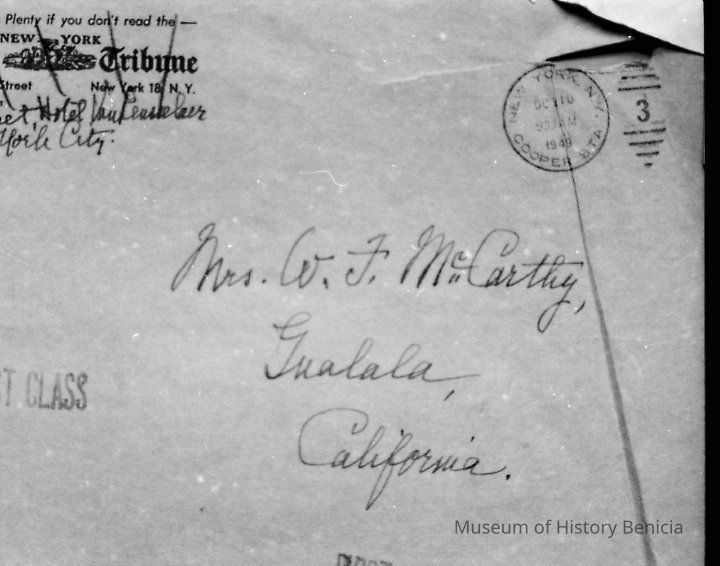 Plenty if you don't read the —
NEW YORK
Tribune
Street New York 18, N. Y.
Hotel Van Rensselaer
York City.
NEW YORK, N.Y.
OCT 10
9 AM
1949
COOPER STA.
3
Mrs. W. F. McCarthy,
Gualala,
California.
ST CLASS
Museum of History Benicia